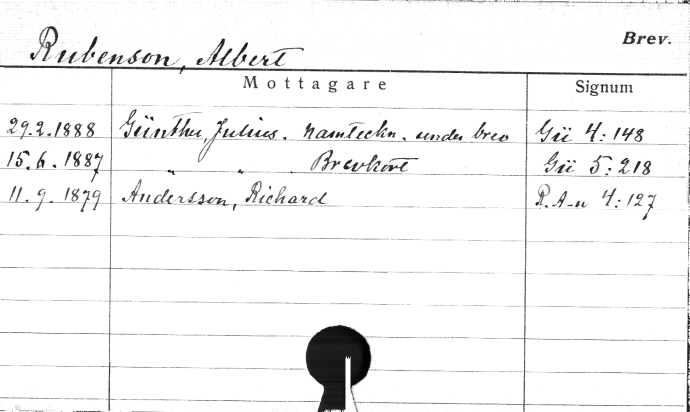 Brev.
Rubenson, Albert
Mottagare Signum
29.2.1888 Günther, Julius. Namteckn. under brev Gü 4:148
15.6.1887 " " Brevkort Gü 5:218
11.9.1879 Andersson, Richard R.A-n 4:127